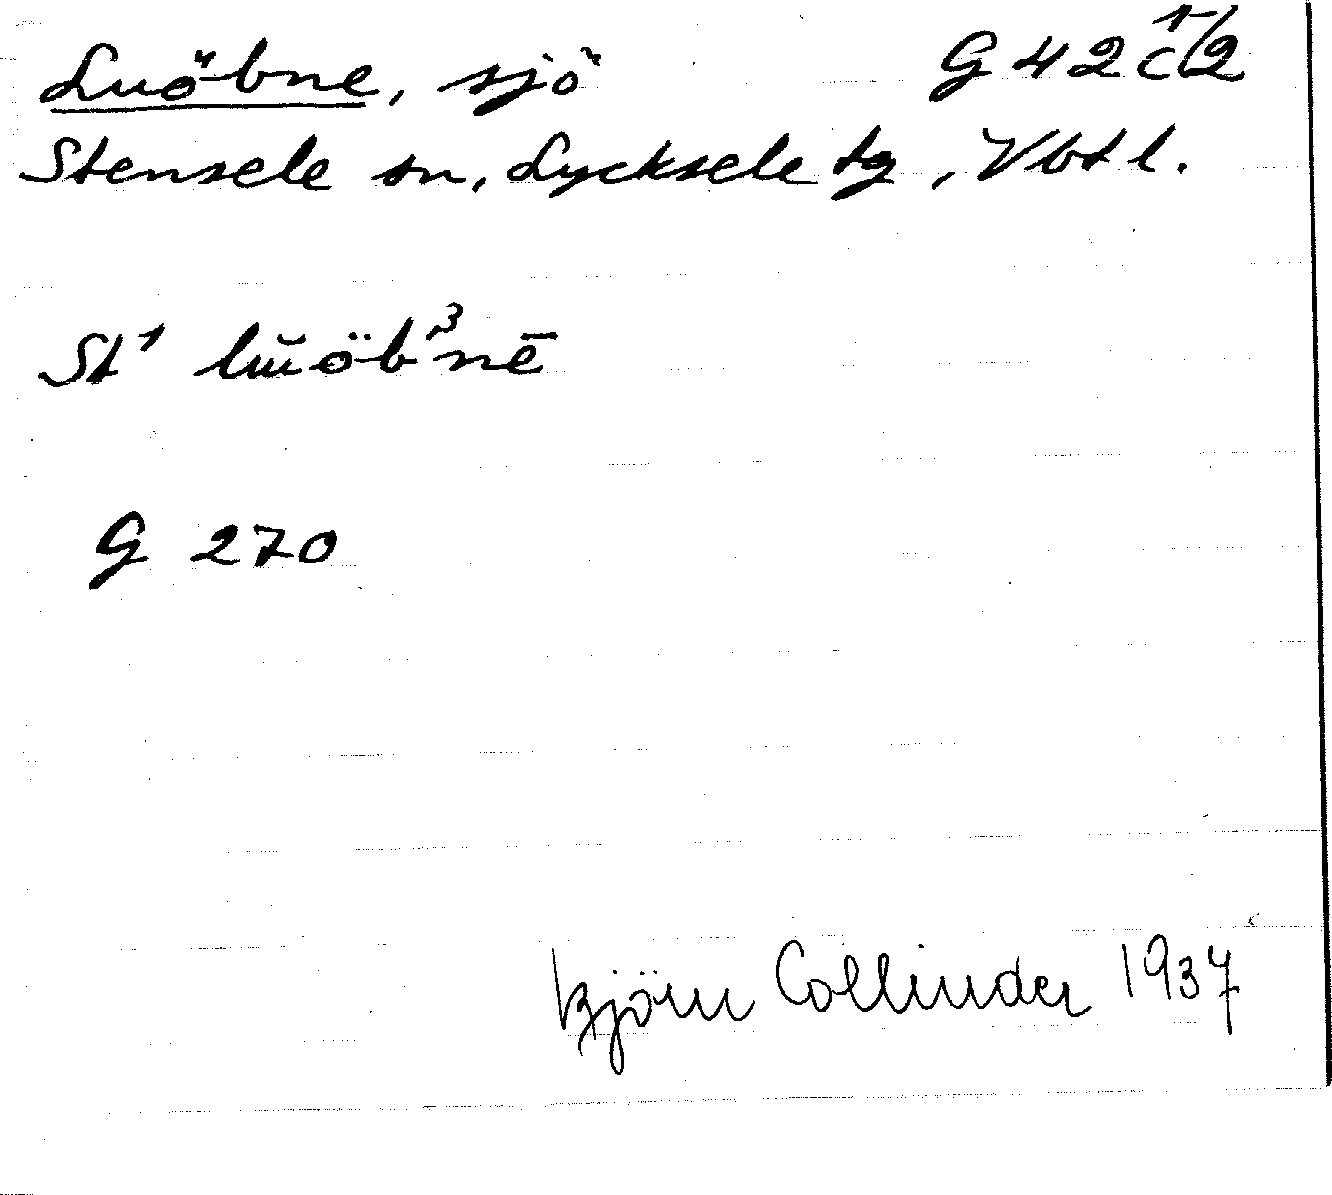 Luöbne, sjö G 42 c 1/2
Stensele sn, Lycksele tg, Vbtl.
St¹ lŭöb³nē
G 270
Björn Collinder 1937